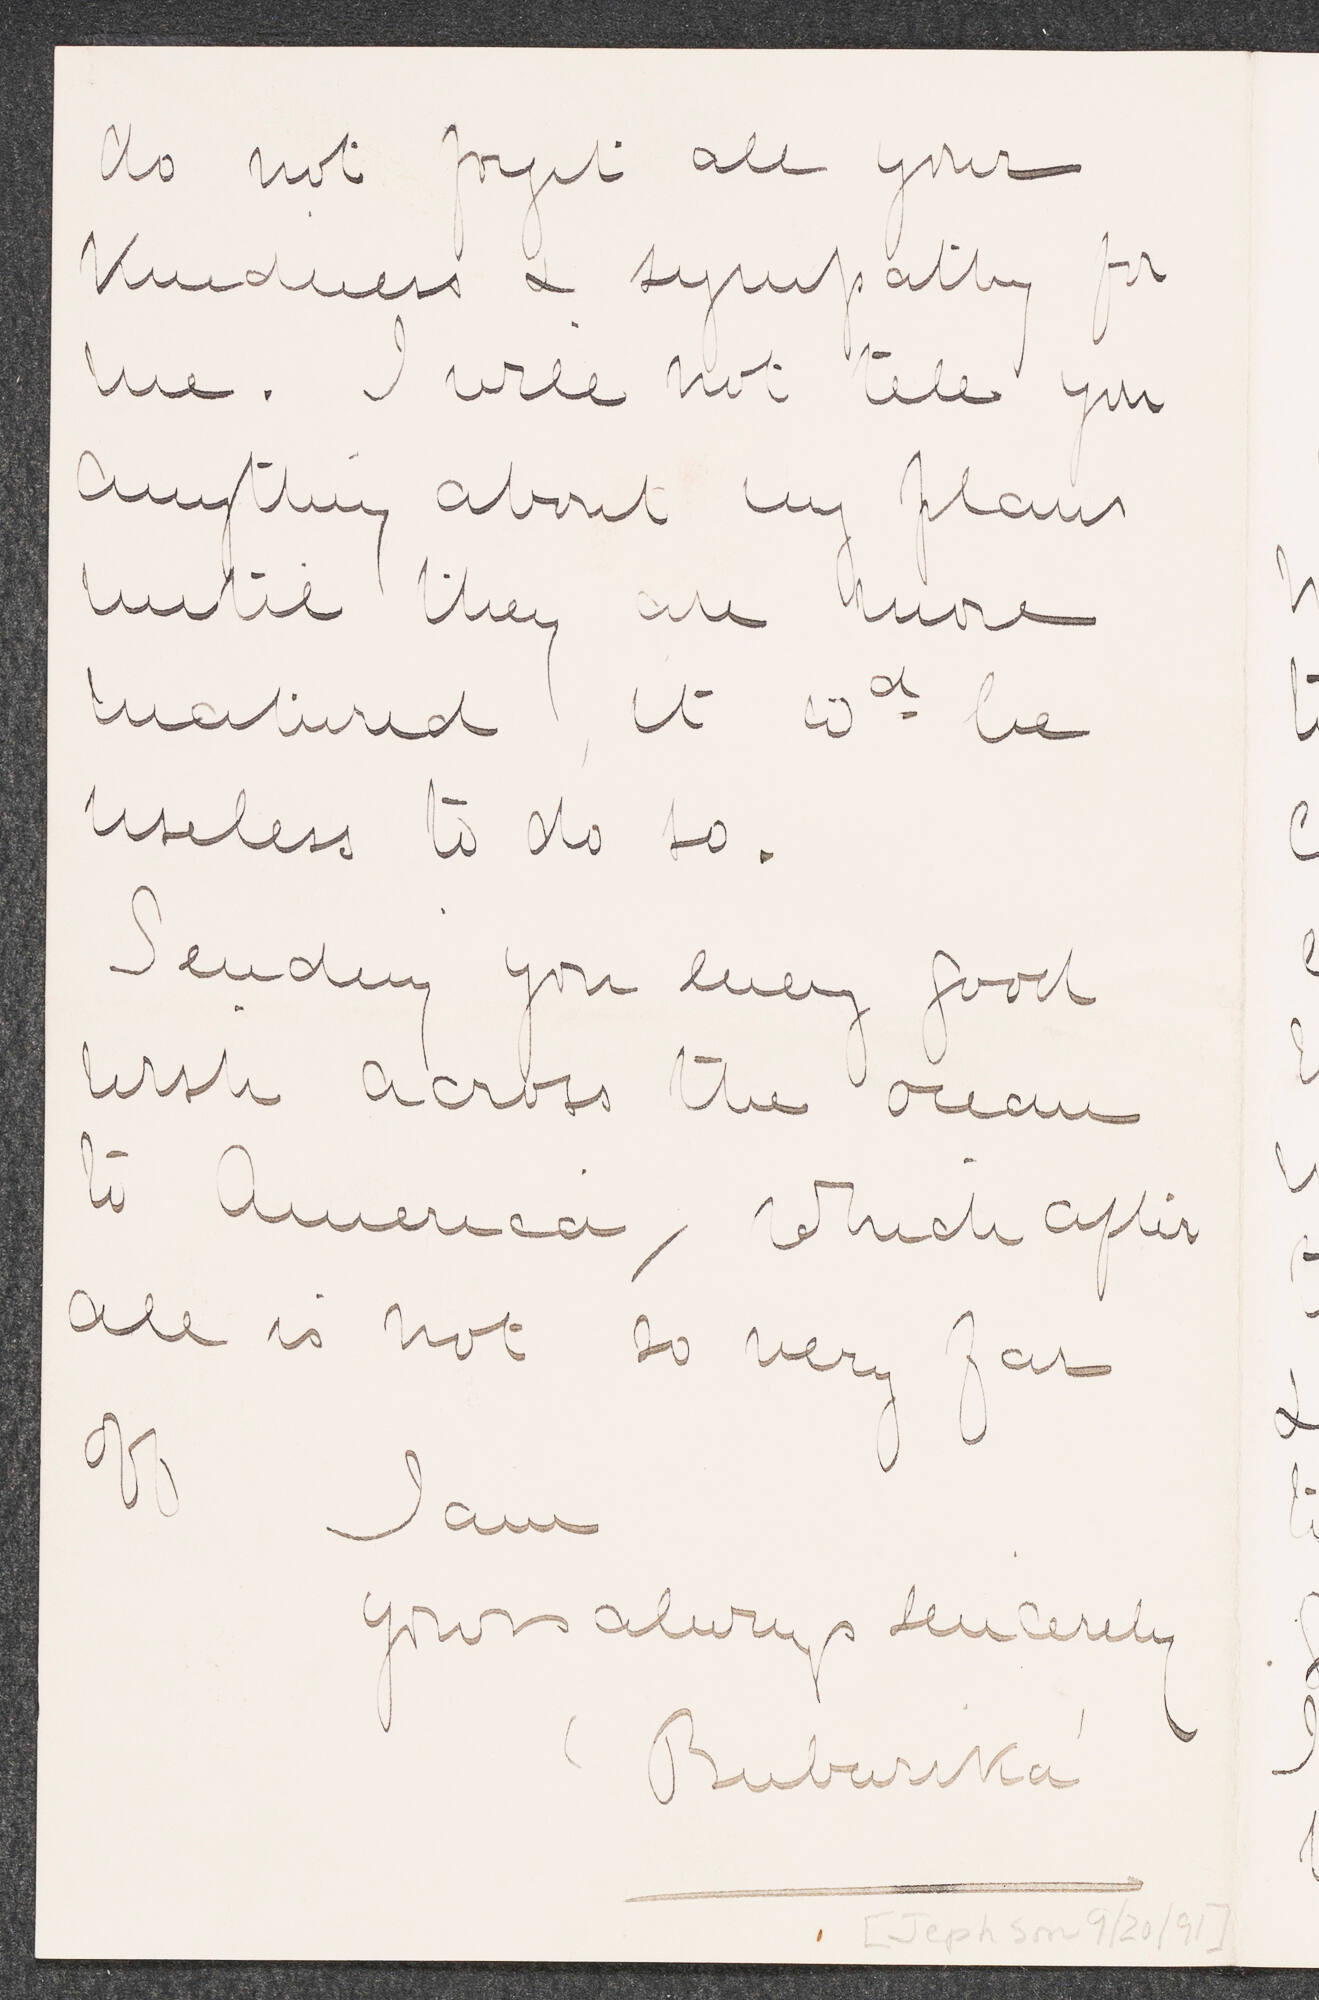 do not forget all your
Kindness & sympathy for
me. I will not tell you
anything about my plans
until they are more
matured, it wd be
useless to do so.
Sending you every good
wish across the ocean
to America, which after
all is not so very far
off I am
yours always sincerely
'Bubarika'
[Jephson 9/20/91]